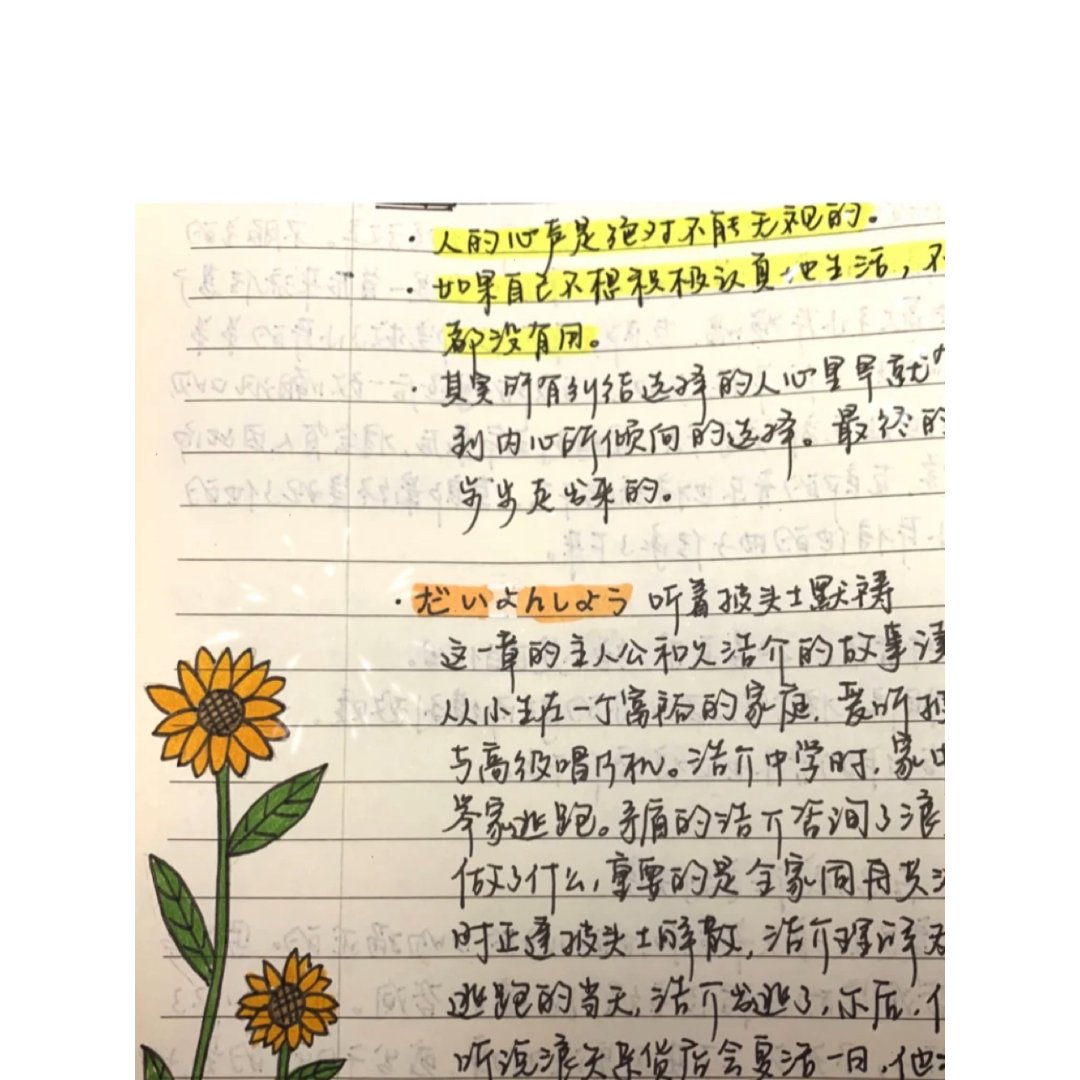 · 人的心声是绝对不能无视的。
· 如果自己不想积极认真地生活，不
都没有用。
· 其实所有纠结选择的人心里早就
到内心所倾向的选择。最终的
步步走出来的。
· だいよんしょう 听着披头士默祷
这一章的主人公和久浩介的故事读
从小生在一个富裕的家庭，爱听披
与高级唱片机。浩介中学时，家中
举家逃跑。矛盾的浩介咨询了浪
做了什么，重要的是全家同舟共济
时正逢披头士解散，浩介理解
逃跑的当天，浩介出逃了，尔后，
听说浪矢杂货店会复活一日，他